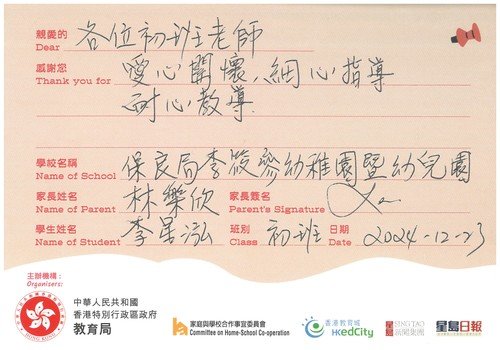 親愛的
Dear 各位初班老師
感謝您
Thank you for 愛心關懷、細心指導
耐心教導.
學校名稱
Name of School 保良局李筱參幼稚園暨幼兒園
家長姓名 家長簽名
Name of Parent 林樂欣 Parent's Signature
學生姓名 班別 日期
Name of Student 李星泓 Class 初班 Date 2024-12-23
主辦機構:
Organisers:
中華人民共和國
香港特別行政區政府
教育局
家庭與學校合作事宜委員會
Committee on Home-School Co-operation
香港教育城
HKedCity
SING TAO
新聞集團
星島日報